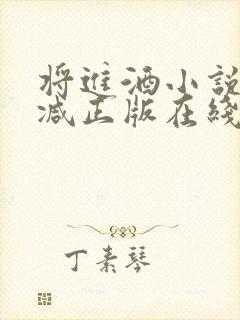 将進酒小説
减正版在綫
丁素琴